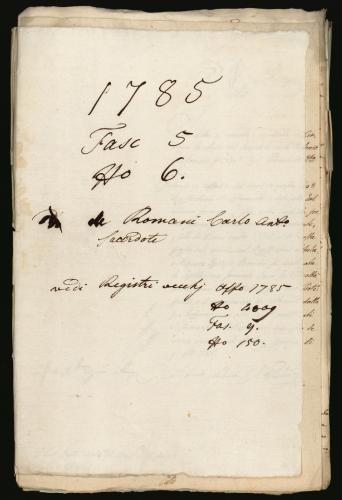 1785
Fasc 5
No 6.
de Romani Carlo Ant.o
Sacerdote
vedi Registri vecchj Offo 1785
No 4809
Fas. 9.
No 150.